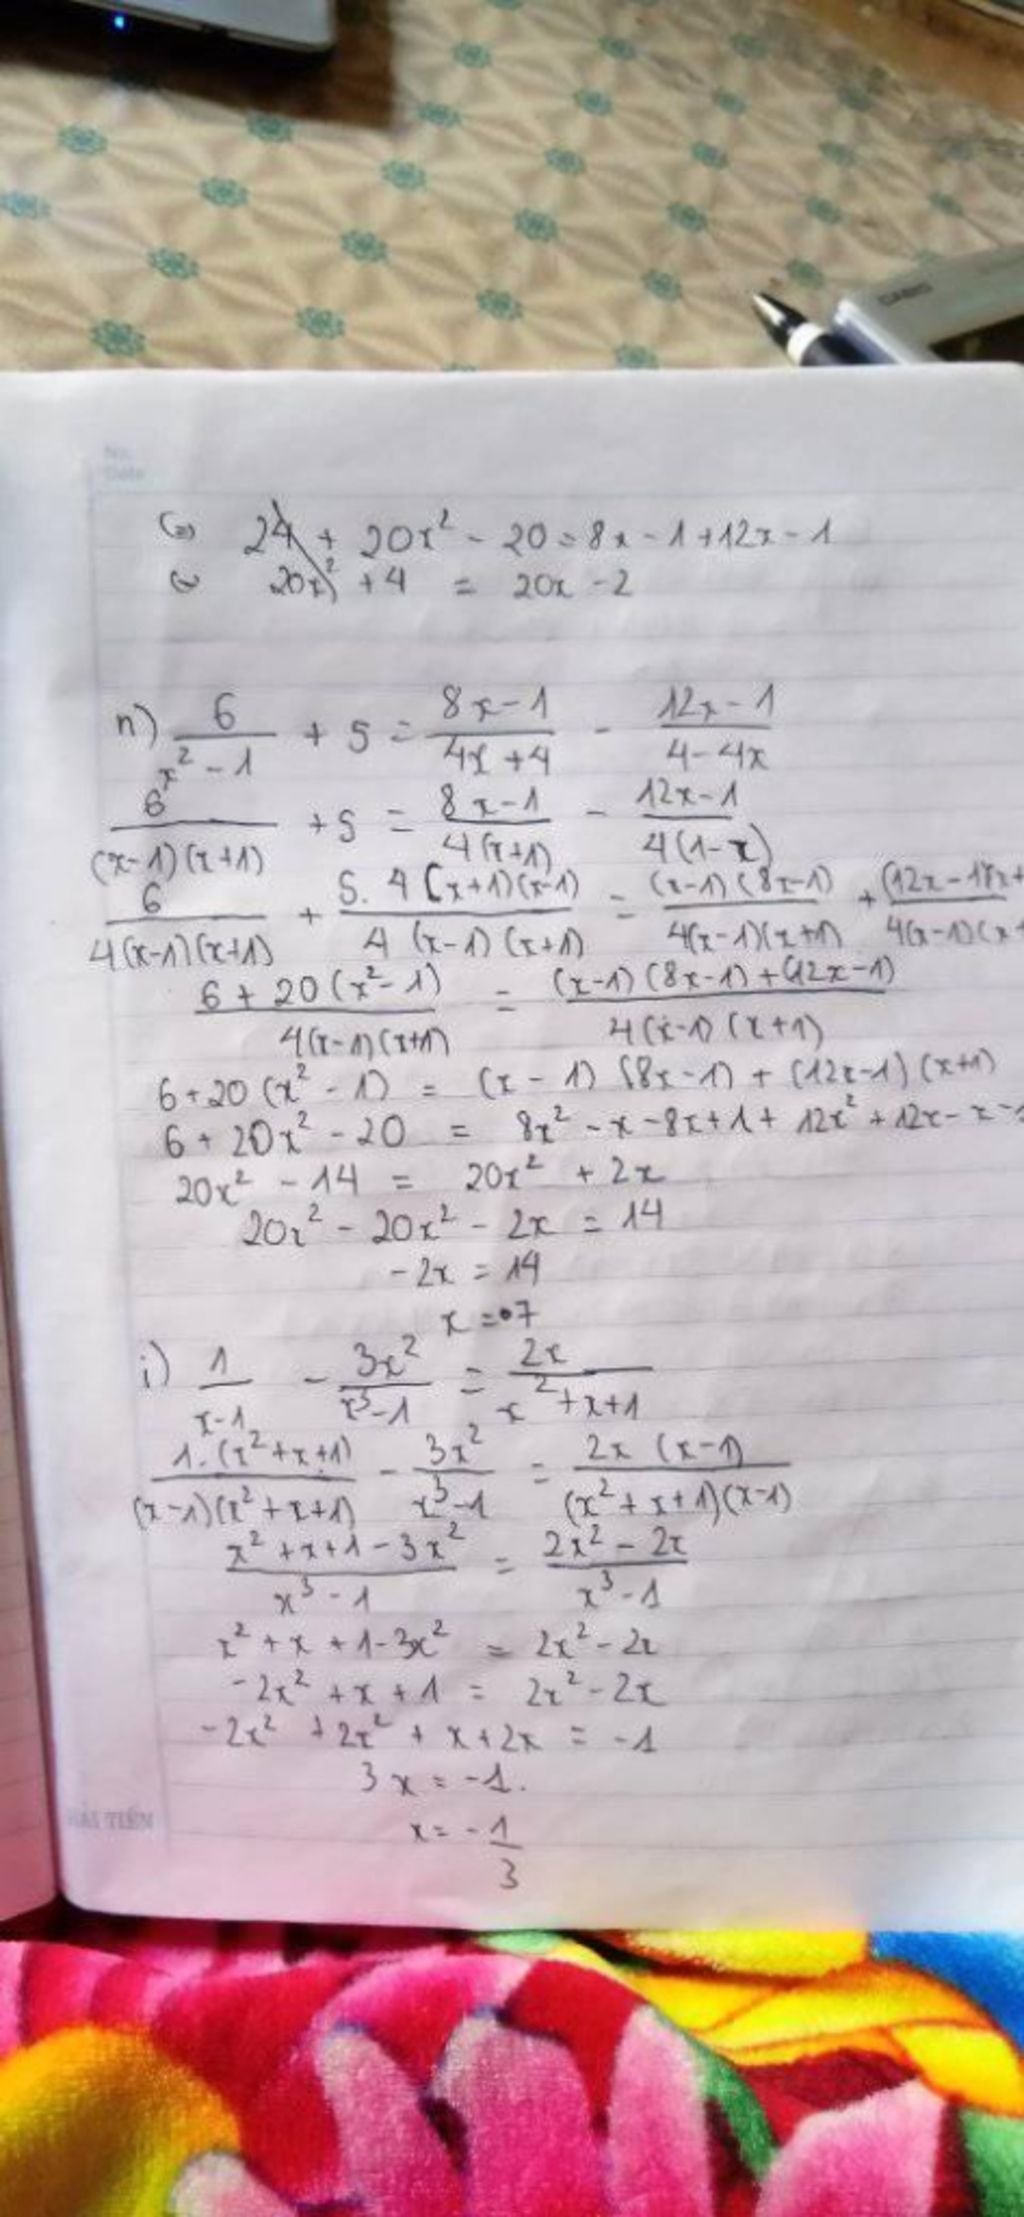 No.
Date
(=) 24 + 20x² - 20 = 8x - 1 + 12x - 1
(=) 20x² + 4 = 20x - 2
n) 6/(x² - 1) + 5 = (8x - 1)/(4x + 4) - (12x - 1)/(4 - 4x)
6/((x-1)(x+1)) + 5 = (8x-1)/(4(x+1)) - (12x-1)/(4(1-x))
6/(4(x-1)(x+1)) + (5.4(x+1)(x-1))/(4(x-1)(x+1)) = ((x-1)(8x-1))/(4(x-1)(x+1)) + ((12x-1)(x+/(4(x-1)(x+
(6 + 20(x²-1))/(4(x-1)(x+1)) = ((x-1)(8x-1)+(12x-1))/(4(x-1)(x+1))
6+20(x²-1) = (x-1)(8x-1)+(12x-1)(x+1)
6+20x²-20 = 8x²-x-8x+1+12x²+12x-x-1
20x² - 14 = 20x² + 2x
20x² - 20x² - 2x = 14
-2x = 14
x = 7
i) 1/(x-1) - 3x²/(x³-1) = 2x/(x²+x+1)
(1.(x²+x+1))/((x-1)(x²+x+1)) - 3x²/(x³-1) = (2x(x-1))/((x²+x+1)(x-1))
(x²+x+1-3x²)/(x³-1) = (2x²-2x)/(x³-1)
x²+x+1-3x² = 2x²-2x
-2x²+x+1 = 2x²-2x
-2x²+2x²+x+2x = -1
3x = -1.
x = -1/3
HẢI TIẾN
CASIO